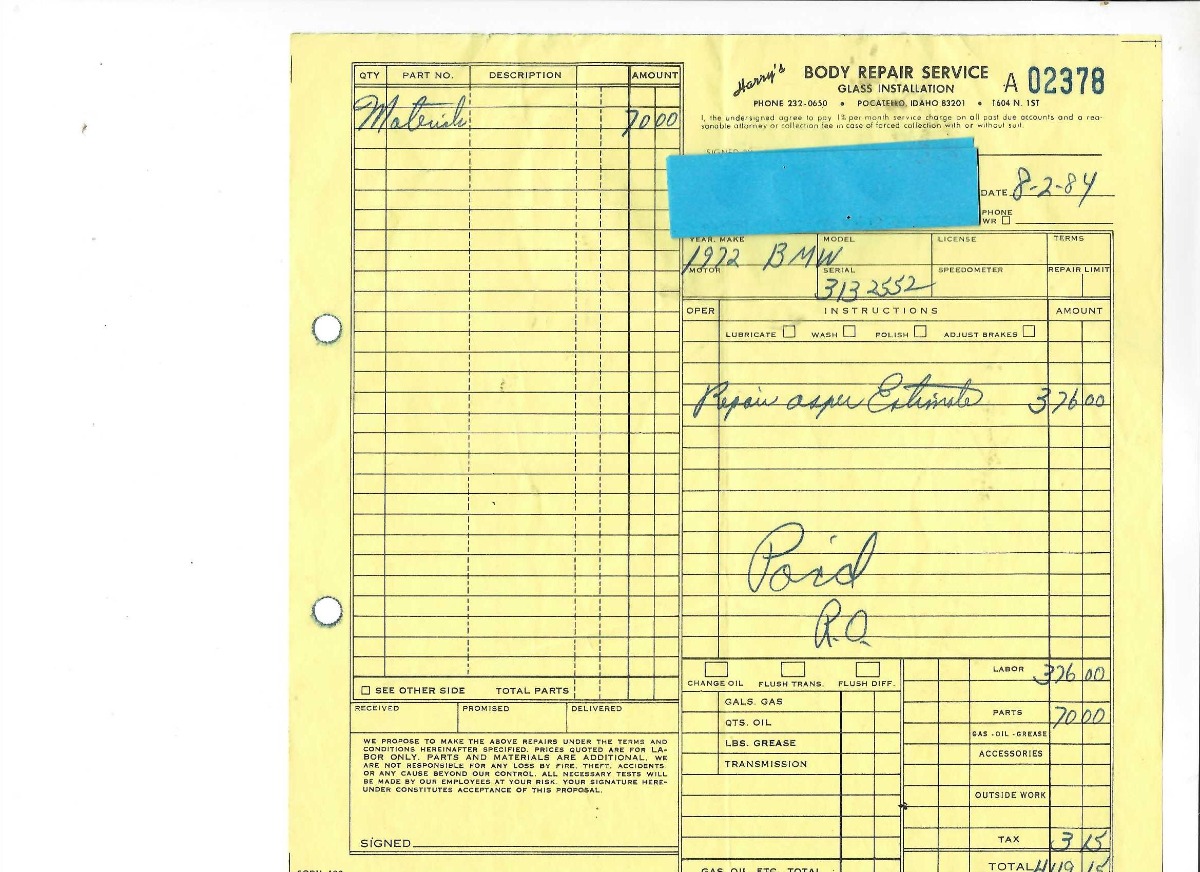 QTY PART NO. DESCRIPTION AMOUNT
Materials 70 00
☐ SEE OTHER SIDE TOTAL PARTS
RECEIVED PROMISED DELIVERED
WE PROPOSE TO MAKE THE ABOVE REPAIRS UNDER THE TERMS AND
CONDITIONS HEREINAFTER SPECIFIED. PRICES QUOTED ARE FOR LA-
BOR ONLY. PARTS AND MATERIALS ARE ADDITIONAL. WE
ARE NOT RESPONSIBLE FOR ANY LOSS BY FIRE, THEFT, ACCIDENTS
OR ANY CAUSE BEYOND OUR CONTROL. ALL NECESSARY TESTS WILL
BE MADE BY OUR EMPLOYEES AT YOUR RISK. YOUR SIGNATURE HERE-
UNDER CONSTITUTES ACCEPTANCE OF THIS PROPOSAL.
SIGNED
Harry's BODY REPAIR SERVICE A 02378
GLASS INSTALLATION
PHONE 232-0650 • POCATELLO, IDAHO 83201 • 1604 N. 1ST
I, the undersigned agree to pay 1% per month service charge on all past due accounts and a rea-
sonable attorney or collection fee in case of forced collection with or without suit.
DATE 8-2-84
PHONE
WR ☐
YEAR, MAKE MODEL LICENSE TERMS
1972 BMW
MOTOR SERIAL SPEEDOMETER REPAIR LIMIT
3132552
OPER INSTRUCTIONS AMOUNT
LUBRICATE ☐ WASH ☐ POLISH ☐ ADJUST BRAKES ☐
Repair as per Estimate 376 00
Paid
R.O.
CHANGE OIL FLUSH TRANS. FLUSH DIFF.
GALS. GAS
QTS. OIL
LBS. GREASE
TRANSMISSION
LABOR 376 00
PARTS 70 00
GAS - OIL - GREASE
ACCESSORIES
OUTSIDE WORK
TAX 3 15
TOTAL 449 15